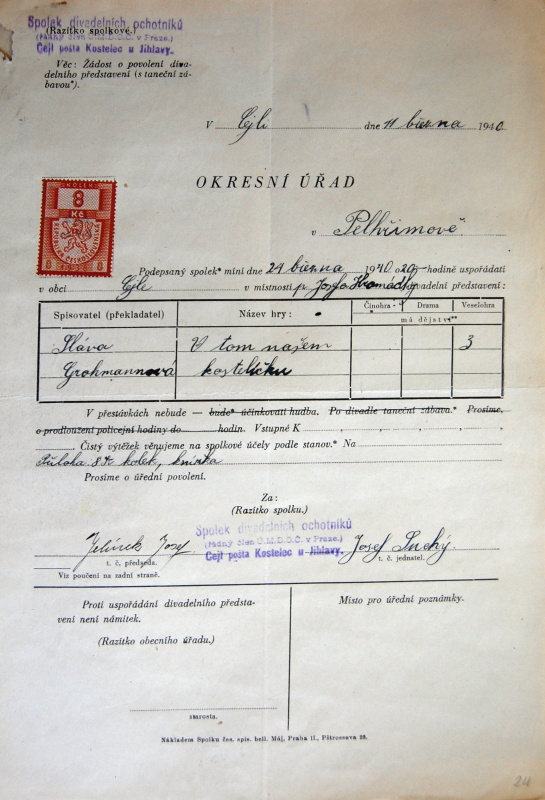 Spolek divadelních ochotníků
(Razítko spolkové.)
(řádný člen Ú.M.D.O.Č. v Praze.)
Cejl pošta Kostelec u Jihlavy.
Věc: Žádost o povolení diva-
delního představení (s taneční zá-
bavou*).
V Cejli dne 11 března 1940.
OKRESNÍ ÚŘAD
v Pelhřimově.
KOLEK
8
Kč
REPUBLIKA ČESKOSLOVENSKÁ
8 1938 8
Podepsaný spolek* míní dne 24 března 1940 o 20- hodině uspořádati
v obci Cejle v místnosti p. Josefa divadelní představení:
Spisovatel (překladatel) Název hry: Činohra Drama Veselohra
má dějství**
Sláva V tom našem 3
Grohmannová kostelíčku
V přestávkách nebude — bude* účinkovati hudba. Po divadle taneční zábava.* Prosíme,
o prodloužení policejní hodiny do hodin. Vstupné K
Čistý výtěžek věnujeme na spolkové účely podle stanov.* Na
Příloha 8 K kolek, knížka
Prosíme o úřední povolení.
Za:
(Razítko spolku.)
Spolek divadelních ochotníků
(řádný člen Ú.M.D.O.Č. v Praze.)
Cejl pošta Kostelec u Jihlavy.
Jelínek Josef Josef Suchý.
t. č. předseda. t. č. jednatel.
Viz poučení na zadní straně.
Proti uspořádání divadelního předsta-
vení není námitek.
(Razítko obecního úřadu.)
Místo pro úřední poznámky.
starosta.
Nákladem Spolku čes. spis. bell. Máj, Praha II., Pštrossova 28.
24